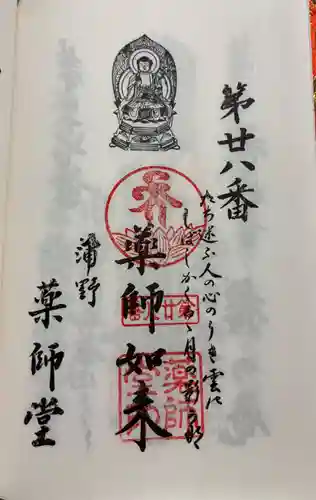 第廿八番
立ち迷ふ人の心のうき雲に
しばしかくるゝ月の影かな
薬師如来
第廿八番
薬師
蒲野
薬師堂